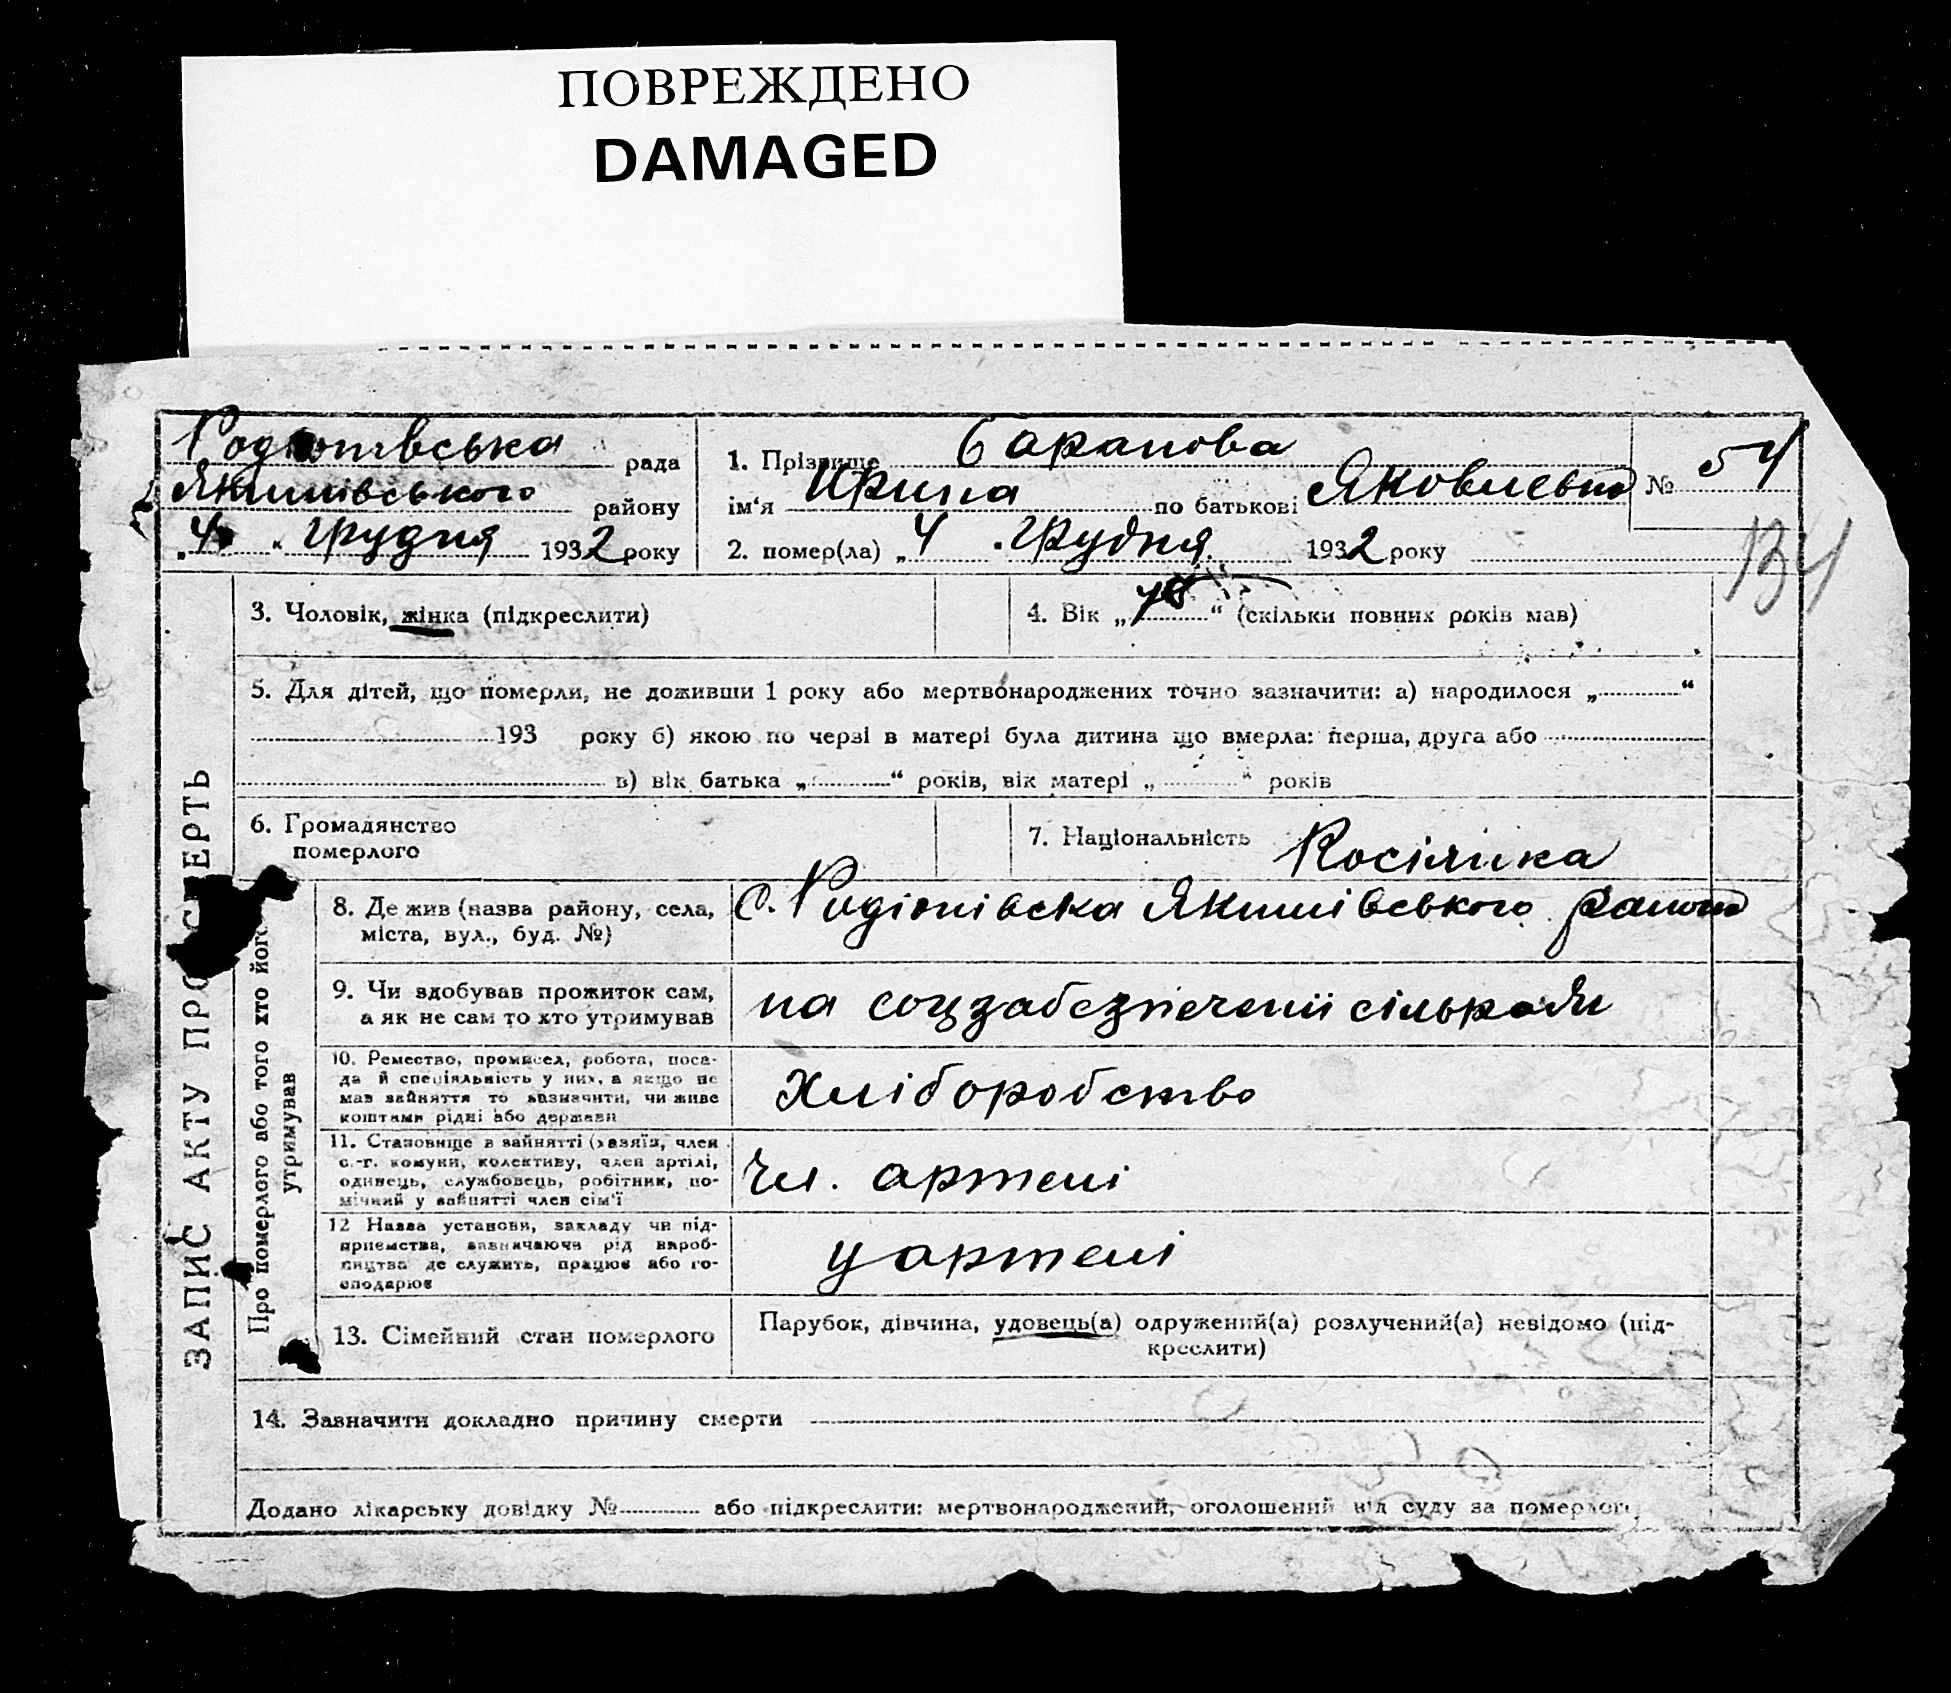 ПОВРЕЖДЕНО
DAMAGED
рада
Якимівського району
„4“ грудня 1932 року
1. Прізвище Баранова
ім'я Ирина по батькові Яковлевна
№ 54
2. помер(ла) „4 грудня 1932 року
134
3. Чоловік, жінка (підкреслити)
4. Вік „ “ (скільки повних років мав)
5. Для дітей, що померли, не доживши 1 року або мертвонароджених точно зазначити: а) народилося „ “
193 року б) якою по черзі в матері була дитина що вмерла: перша, друга або
в) вік батька „ “ років, вік матері „ “ років
6. Громадянство
померлого
7. Національність Росіянка
8. Де жив (назва району, села,
міста, вул., буд. №)
с. Родіонівска Якимівського району
9. Чи здобував прожиток сам,
а як не сам то хто утримував
на соцзабезпеченії сільради
10. Ремество, промисел, робота, поса-
да й спеціяльність у них, а якщо не
мав зайняття то зазначити, чи живе
коштами рідні або держави
Хліборобство
11. Становище в зайнятті (хазяїн, член
с.-г. комуни, колективу, член артілі,
одинець, службовець, робітник, по-
мічний у зайнятті член сім'ї
Чл. артелі
12 Назва установи, закладу чи під-
приємства, зазначаючи рід вироб-
ництва де служить, працює або го-
сподарює
у артелі
13. Сімейний стан померлого
Парубок, дівчина, удовець(а) одружений(а) розлучений(а) невідомо (під-
креслити)
14. Зазначити докладно причину смерти
Додано лікарську довідку № або підкреслити: мертвонароджений, оголошений від суду за померлого
ЗАПИС АКТУ ПРО СМЕРТЬ
Про померлого або того хто його
утримував